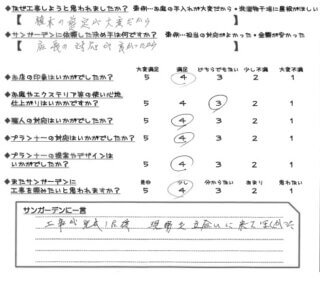 ◆なぜ工事しようと思われましたか？ 事例…お庭の手入れが大変だから・洗濯物干場に屋根がほしい
【 植木の 剪定が大変だから 】
◆サンガーデンに依頼した決め手は何ですか？ 事例…担当の対応がよかった・金額が安かった
【 店長の 対応が良かったから 】
大変満足 満足 どちらでもない 少し不満 大変不満
◆お店の印象はいかがでしたか？ 5 4 3 2 1
◆お庭やエクステリア等の使い心地、
仕上がりはいかがですか？ 5 4 3 2 1
◆職人の対応はいかがでしたか？ 5 4 3 2 1
◆プランナーの対応はいかがでしたか？ 5 4 3 2 1
◆プランナーの提案やデザインは
いかがでしたか？ 5 4 3 2 1
思う 少し 分からない あまり 思わない
◆またサンガーデンに
工事を頼みたいと思われますか？ 5 4 3 2 1
サンガーデンに一言
工事が完成した後 現場を 立会いに 来て